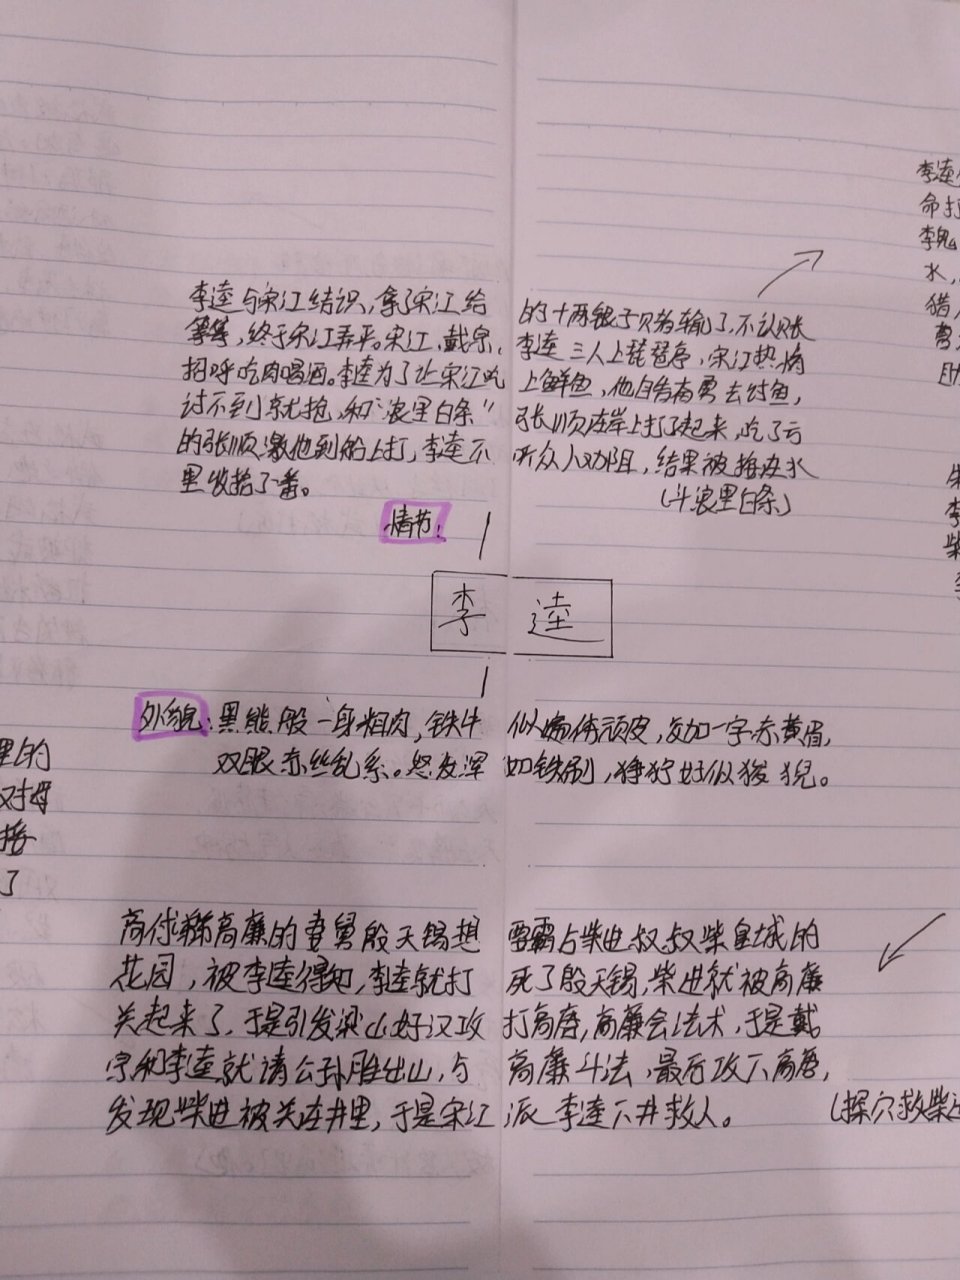 李逵与宋江结识，拿了宋江给的十两银子只为输了，不认账
等等，终于宋江弄平。宋江、戴宗、李逵三人上琵琶亭，宋江热情
招呼吃肉喝酒。李逵为了让宋江吃上鲜鱼，他自告奋勇去讨鱼，
讨不到就抢，和“浪里白条”张顺在岸上打了起来，吃了亏
的张顺激他到船上打，李逵不听众人劝阻，结果被按在水
里收拾了一番。
（斗浪里白条）
情节：
李逵
外貌：黑熊般一身粗肉，铁牛似遍体顽皮，交加一字赤黄眉，
双眼赤丝乱系。怒发浑如铁刷，狰狞好似狻猊。
高廉的妻舅殷天锡想要霸占柴进叔叔柴皇城的
花园，被李逵得知，李逵就打死了殷天锡，柴进就被高廉
关起来了，于是引发梁山好汉攻打高唐，高廉会法术，于是戴
宗和李逵就请公孙胜出山，与高廉斗法，最后攻下高唐，
发现柴进被关在井里，于是宋江派李逵下井救人。
（探穴救柴进
李逵
命
李鬼
水，
猎
勇
李
柴
李
里的
对母
接
了